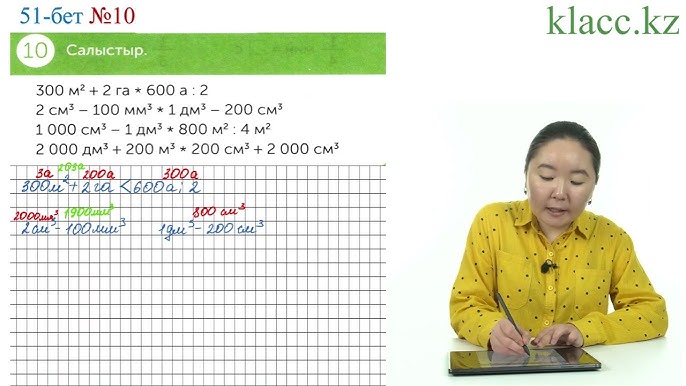 51-бет №10
klacc.kz
10 Салыстыр.
300 м² + 2 га * 600 а : 2
2 см³ – 100 мм³ * 1 дм³ – 200 см³
1 000 см³ – 1 дм³ * 800 м² : 4 м²
2 000 дм³ + 200 м³ * 200 см³ + 2 000 см³
3а 203а 200а 300а
300м² + 2га < 600а : 2
2000мм³ 1900мм³ 800 см³
2см³ - 100мм³ 1дм³ - 200 см³